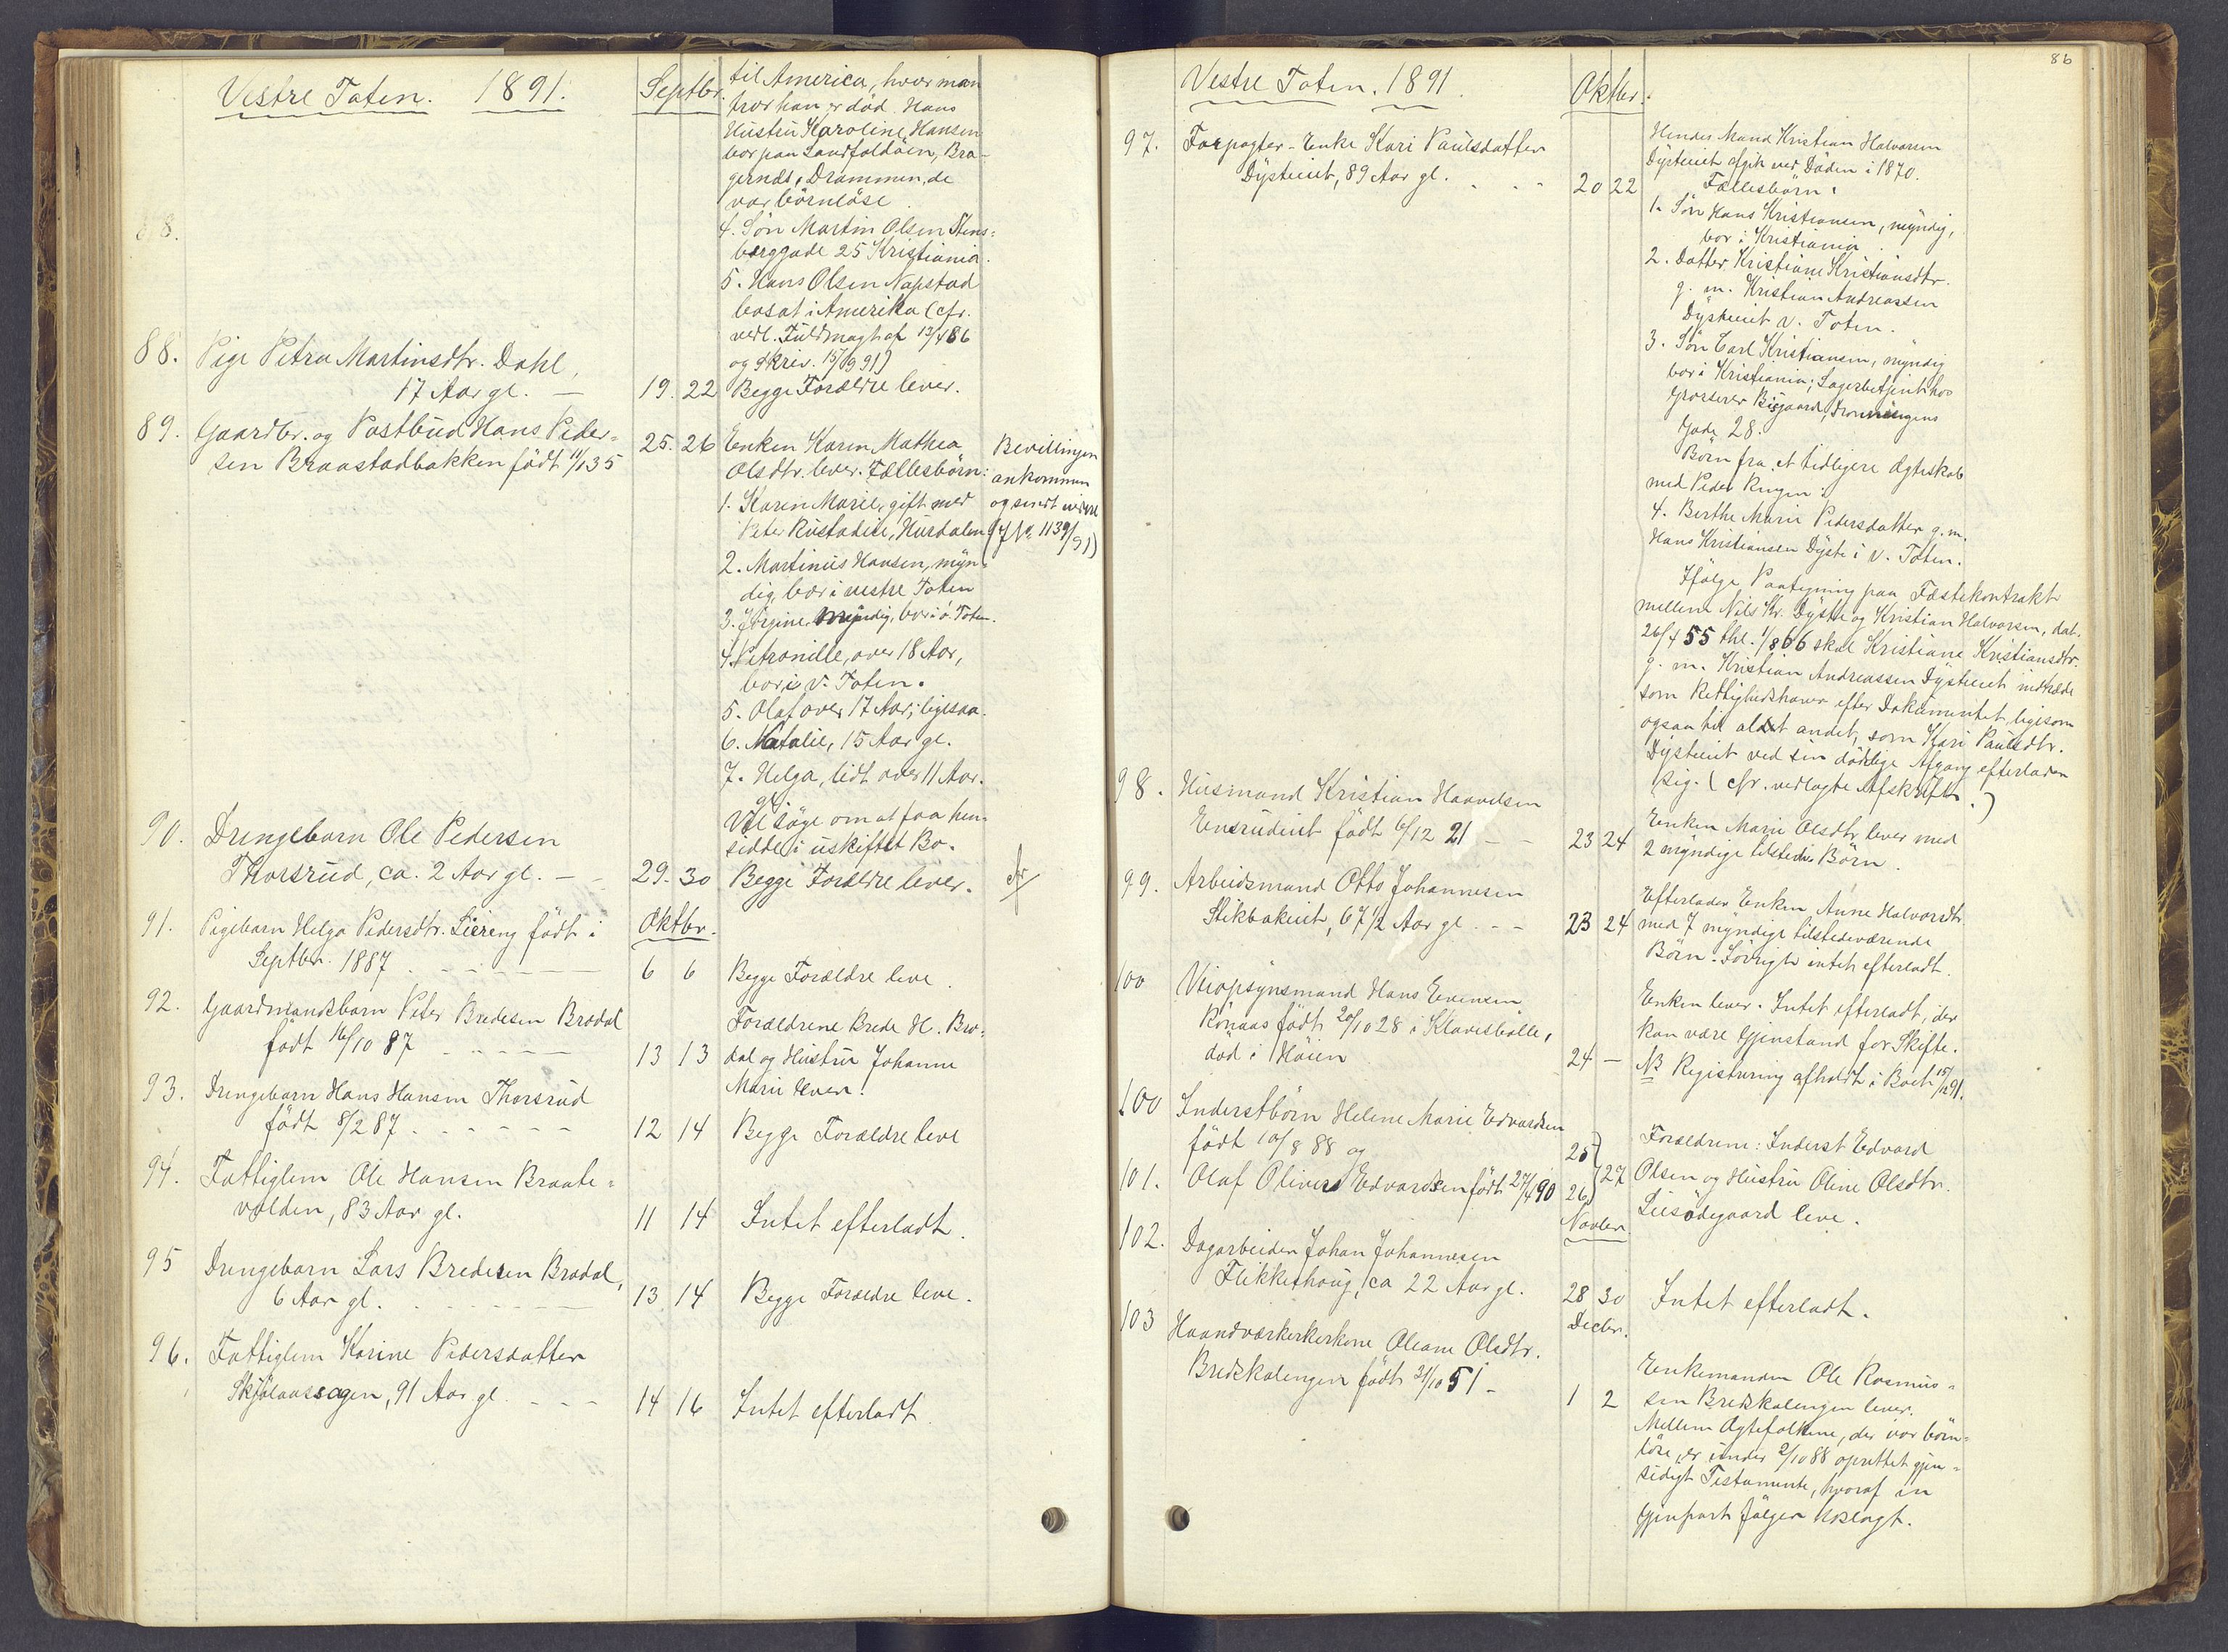 Vestre Toten. 1891.
Septbr.
til America, hvor man
tror han er död. Hans
Hustru Karoline Hansen
bor paa Landfaldöen, Bra-
gernæs, Drammen, de
var börnlöse.
4. Sön Martin Olsen Stens-
berggade 25 Kristiania.
5. Hans Olsen Napstad
bosat i Amerika (cfr.
vedl. Fuldmagt af 13/4 86
og Skriv. 15/9 91)
88.
88. Pige Petra Martinsdtr. Dahl,
17 Aar gl. — 19. 22 Begge Forældre lever.
89. Gaardbr. og Postbud Hans Peder-
sen Braastadbakken födt 11/1 35
25. 26 Enken Karen Mathea
Olsdtr. lever. Fællesbörn:
1. Karen Marie, gift med
Peter Rustadeie, Hurdalen
2. Martinus Hansen, myn-
dig, bor i vestre Toten
3. Jörgine, myndig, bor i ö. Toten.
4. Petronille, over 18 Aar,
bor i v. Toten.
5. Olaf over 17 Aar, ligesaa.
6. Natalie, 15 Aar gl.
7. Helga, lidt over 11 Aar.
gl.
Vil söge om at faa hen-
sidde i uskiftet Bo.
Bevillingen
ankommen
og sendt videre
(J No. 1139/91)
90. Drengebarn Ole Pedersen
Thorsrud, ca. 2 Aar gl. — 29. 30 Begge Forældre lever.
Oktbr.
91. Pigebarn Helga Pedersdtr. Liereng födt i
Septbr. 1887 6 6 Begge Forældre leve.
92. Gaardmandsbarn Peter Bredesen Brodal
födt 16/10 87 13 13
Forældrene Brede H. Bro-
dal og Hustru Johanne
Marie lever.
93. Drengebarn Hans Hansen Thorsrud
födt 8/2 87 12 14 Begge Forældre leve
94. Fattiglem Ole Hansen Braate-
volden, 83 Aar gl. 11 14 Intet efterladt.
95 Drengebarn Lars Bredesen Brodal,
6 Aar gl. 13 14 Begge Forældre leve.
96. Fattiglem Karine Pedersdatter
Skjölaassagen, 91 Aar gl. 14 16 Intet efterladt.
86
Vestre Toten. 1891.
Oktbr.
97. Forpagter-Enke Kari Paulsdatter
Dysteeiet, 89 Aar gl. 20 22
Hendes Mand Kristian Halvorsen
Dysteeiet afgik ved Döden i 1870.
Fællesbörn:
1. Sön Hans Kristiansen, myndig,
bor i Kristiania.
2. Datter Kristiane Kristiansdtr.
g. m. Kristian Andreassen
Dysteeiet v. Toten.
3. Sön Carl Kristiansen, myndig
bor i Kristiania, Lagerbetjent hos
Grosserer Bisgaard, Dronningens
Gade 28.
Börn fra et tidligere Ægteskab
med Peder Ringen:
4. Berthe Marie Pedersdatter g. m.
Hans Kristiansen Dyste i v. Toten.
Ifölge Paategning paa Fæstekontrakt
mellem Nils Kr. Dyste og Kristian Halvorsen, dat.
26/4 55 thl. 1/8 66 skal Kristiane Kristiansdtr.
g. m. Kristian Andreassen Dysteeiet indtræde
som Rettighedshaver efter Dokumentet, ligesom
ogsaa til aldt andet, som Kari Paulsdtr.
Dysteeiet ved sin dödelige Afgang efterlader
sig. (cfr. vedlagte Afskrift.)
98. Husmand Kristian Haavelsen
Eensrudeiet födt 6/12 21 — 23 24
Enken Marie Olsdtr. lever med
2 myndige tilstedev. Börn.
99. Arbeidsmand Otto Johannesen
Stikbakeiet, 67 1/2 Aar gl. 23 24
Efterlader Enken Anne Halvorsdtr.
med 7 myndige tilstedeværende
Börn. Iövrigt intet efterladt.
100 Veiopsynsmand Hans Evensen
Rönaas födt 20/10 28 i Klævesbölle,
död i Höien 24 —
Enken lever. Intet efterladt, der
kan være Gjenstand for Skifte.
NB Registrering afholdt i Boet 15/12 91.
100 Inderstbörn Helene Marie Edvardsen
födt 10/8 88 og 25
101. Olaf Oliver Edvardsen födt 27/4 90 26 27
Forældrene: Inderst Edvard
Olsen og Hustru Oline Olsdtr.
Liesödegaard leve.
Novbr.
102. Dagarbeider Johan Johannesen
Flikkeshaug, ca 22 Aar gl. 28 30 Intet efterladt.
Decbr.
103 Haandværkerkone Oleane Olsdtr.
Bredskalengen födt 31/10 51 — 1 2
Enkemanden Ole Rasmus-
sen Bredskalengen lever.
Mellem Ægtefolkene, der var börn-
löse, er under 2/10 88 oprettet gjen-
sidigt Testamente, hvoraf en
Gjenpart fölger hoslagt.